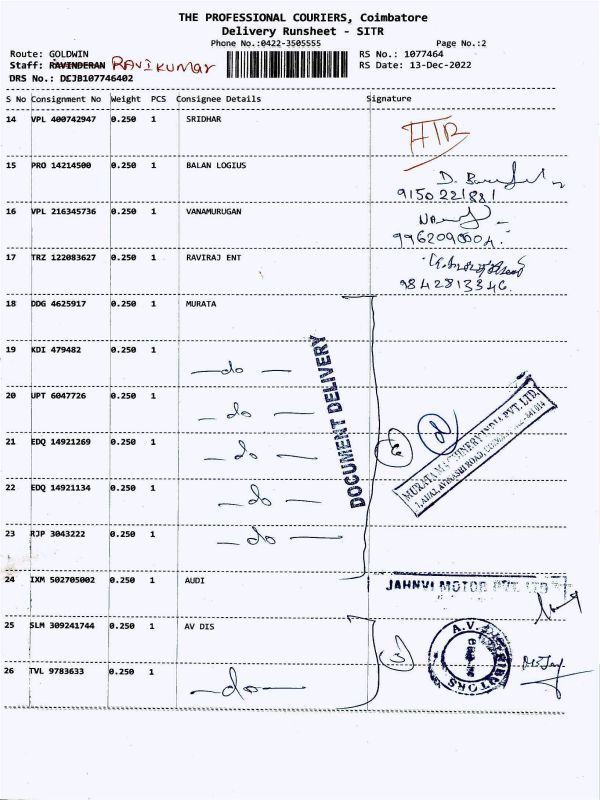 THE PROFESSIONAL COURIERS, Coimbatore
Delivery Runsheet - SITR
Phone No.:0422-3505555 Page No.:2
Route: GOLDWIN RS No.: 1077464
Staff: RAVINDERAN RAVIKUMAR RS Date: 13-Dec-2022
DRS No.: DEJB107746402
S No Consignment No Weight PCS Consignee Details Signature
14 VPL 400742947 0.250 1 SRIDHAR
15 PRO 14214500 0.250 1 BALAN LOGIUS
9150221881
16 VPL 216345736 0.250 1 VANAMURUGAN
9962090004.
17 TRZ 122083627 0.250 1 RAVIRAJ ENT
9842813346.
18 DDG 4625917 0.250 1 MURATA
19 KDI 479482 0.250 1 —do—
20 UPT 6047726 0.250 1 —do—
21 EDQ 14921269 0.250 1 —do—
22 EDQ 14921134 0.250 1 —do—
23 RJP 3043222 0.250 1 —do—
DOCUMENT DELIVERY
6
MURATA MACHINERY INDIA PVT. LTD.
24 IXM 502705002 0.250 1 AUDI
JAHNVI MOTOR PVT. LTD
25 SLM 309241744 0.250 1 AV DIS
A.V. DISTRIBUTORS
26 TVL 9783633 0.250 1 —do—